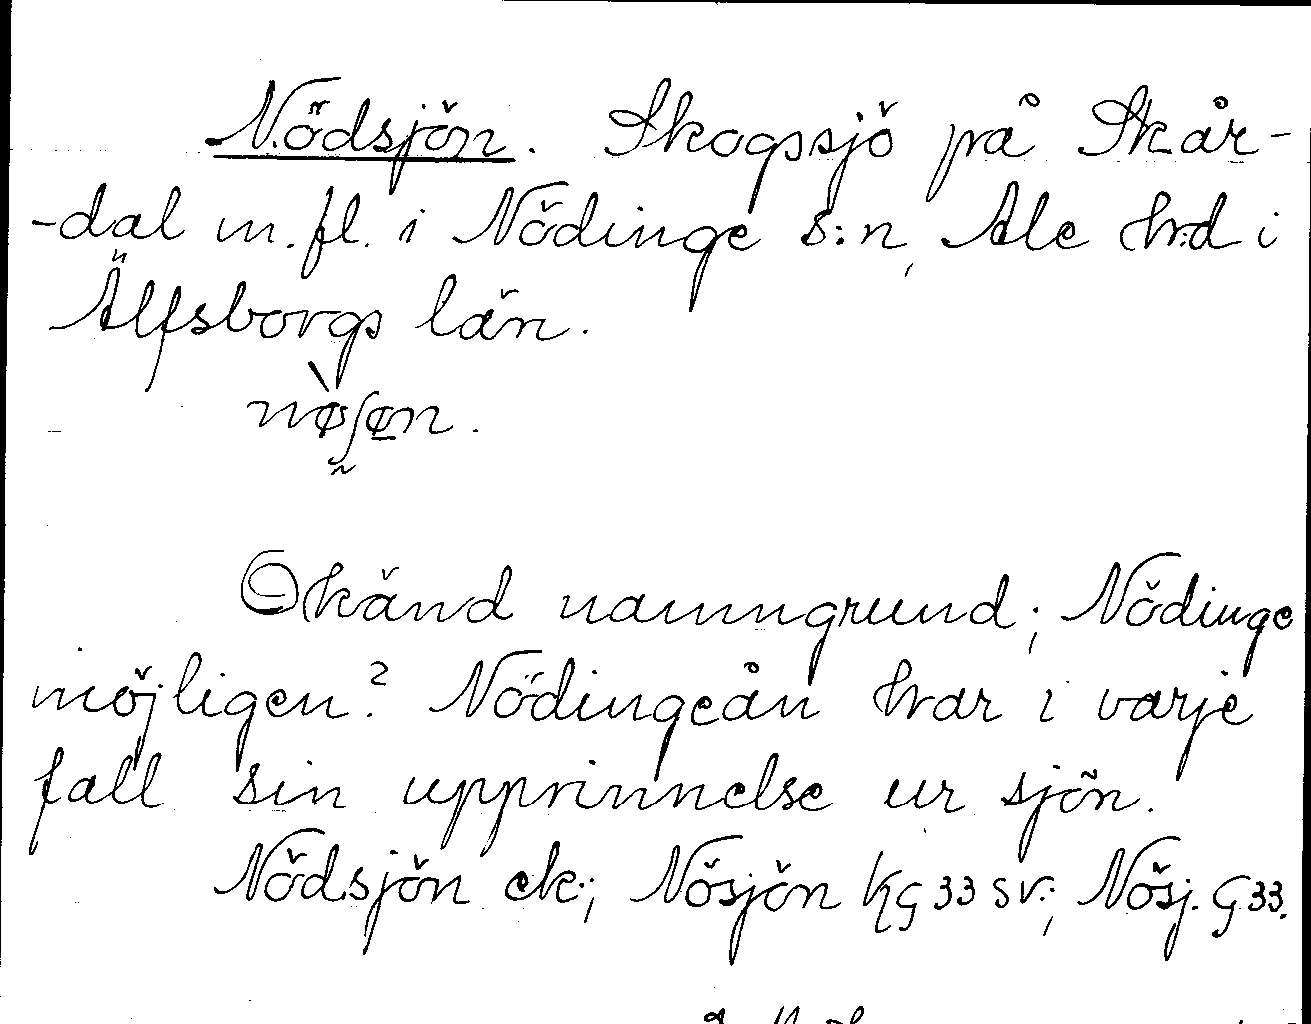 Nödsjön. Skogssjö på Skår-
-dal m.fl. i Nödinge s:n, Ale hrd i
Älfsborgs län.
Okänd namngrund; Nödinge
möjligen? Nödingeån har i varje
fall sin upprinnelse ur sjön.
Nödsjön ek; Nösjön KG 33 SV; Nösj. G 33.